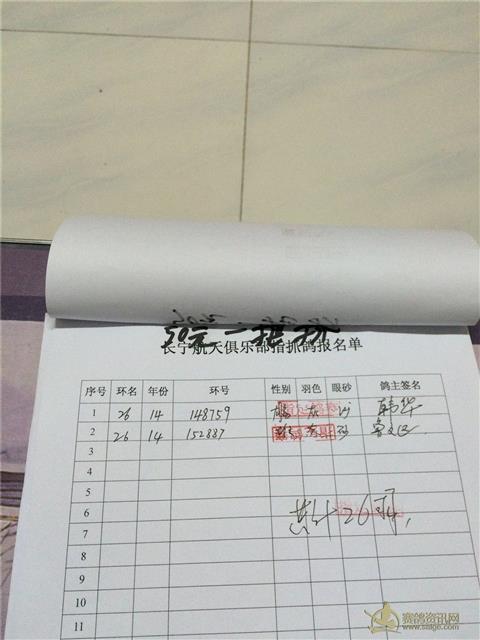 50元一指抓
长宁航天俱乐部指抓鸽报名单
序号 环名 年份 环号 性别 羽色 眼砂 鸽主签名
1 26 14 148759 灰 沙 韩华
2 26 14 152887 砂
3
4
5
6 共计26羽
7
8
9
10
11
赛鸽资讯网
www.saige.com